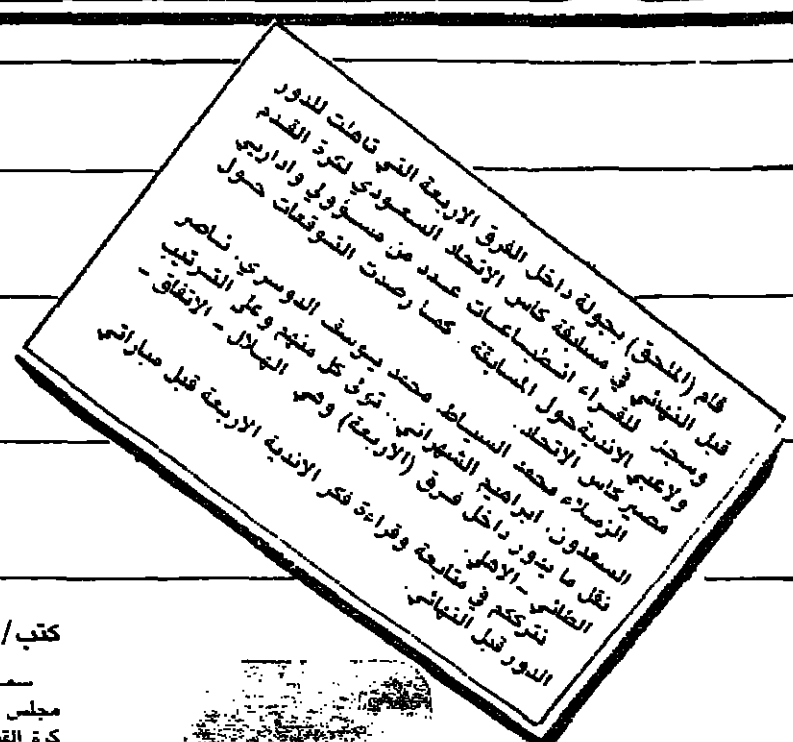 قام (الملحق) بجولة داخل الفرق الاربعة التي تاهلت للدور
قبل النهائي في مسابقة كاس الاتحاد السعودي لكرة القدم
وسجز للقراء انطباعات عدد من مسؤولي واداريي
ولاعبي الاندية حول المسابقة. كما رصدت التوقعات حول
مصير كاس الاتحاد.
الزملاء محمد السياط، محمد يوسف الدوسري، ناصر
السعدون، ابراهيم الشهراني.. تولى كل منهم وعلى الترتيب
نقل ما يدور داخل فرق (الاربعة) وهي الهلال - الاتفاق -
الطائي - الاهلي.
نترككم في متابعة وقراءة فكر الاندية الاربعة قبل مباراتي
الدور قبل النهائي.
كتب/
سمـ
مجلس
كرة القد